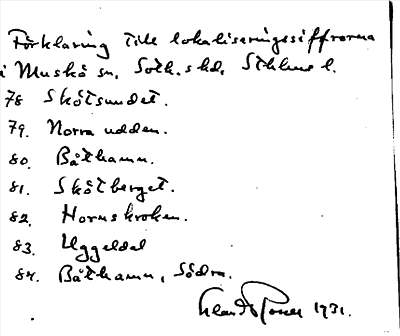 Förklaring till lokaliseringssiffrorna
i Muskö sn, Soth.shd, Sthlms l.
78 Skötsundet.
79. Norra udden.
80. Båthamn.
81. Skötberget.
82. Hornskroken.
83. Uggeldal
84. Båthamn, Södra.
1931.